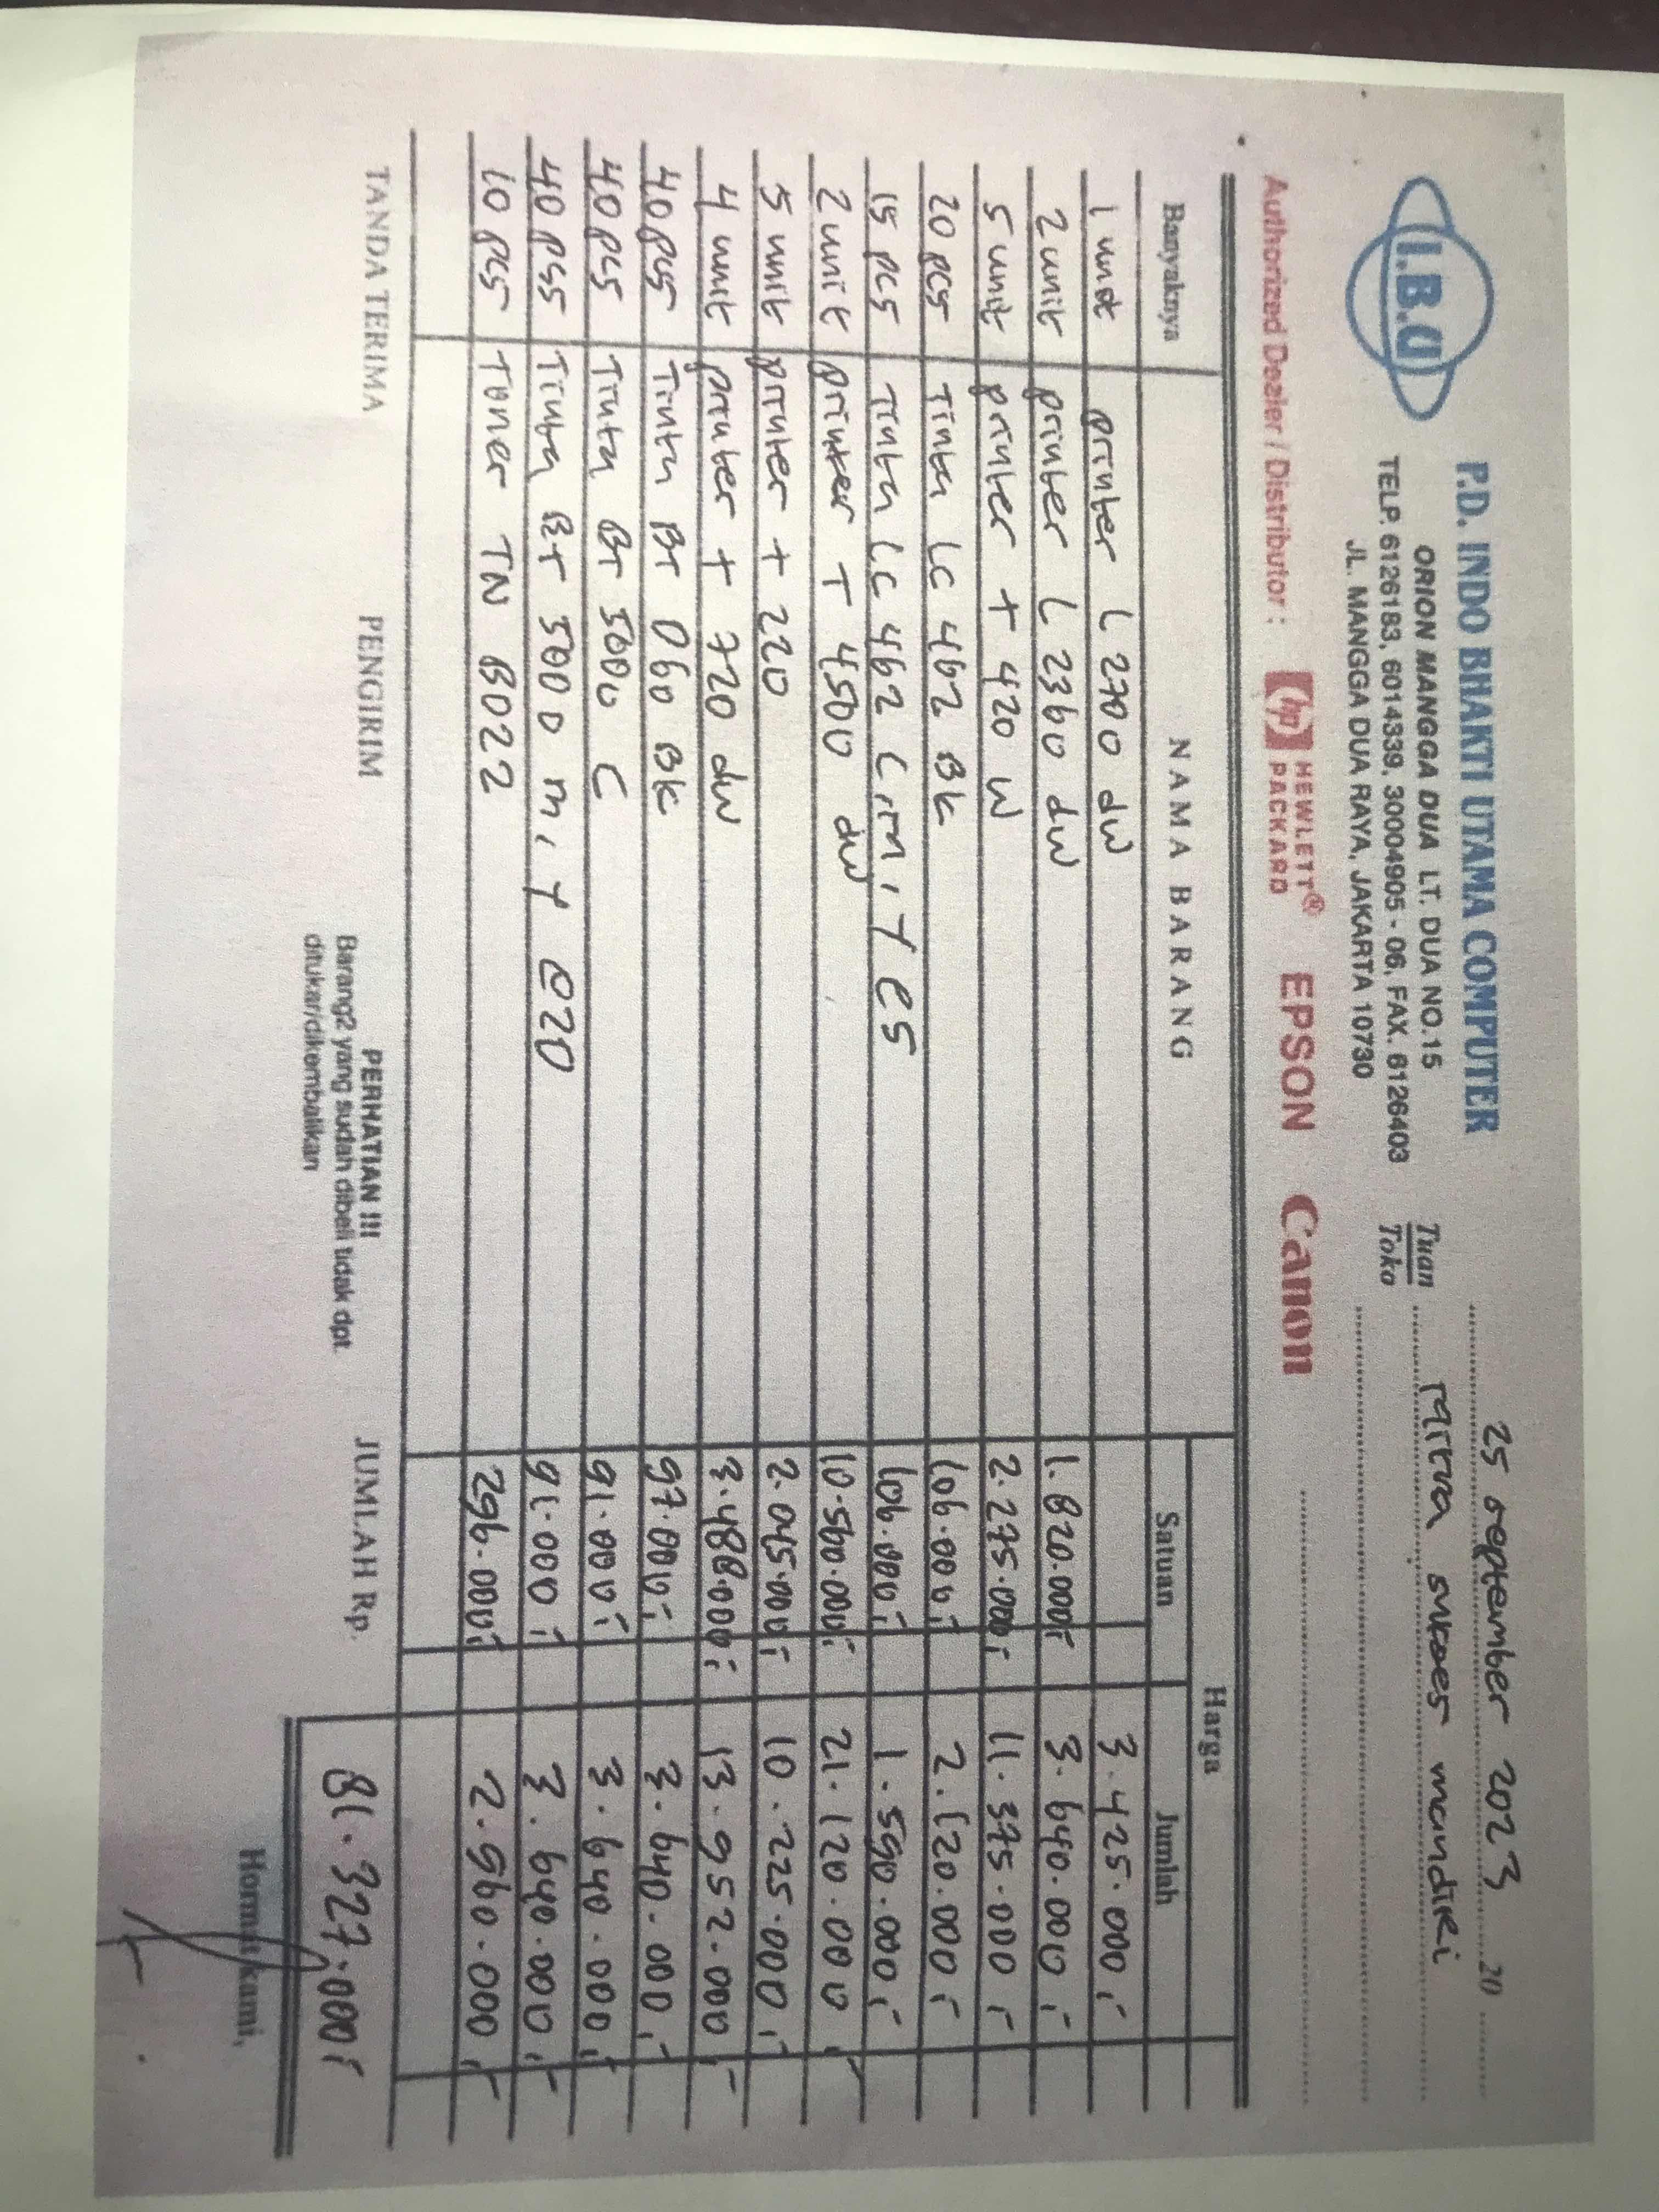 P.D. INDO BHAKTI UTAMA COMPUTER
ORION MANGGA DUA LT. DUA NO.15
TELP. 6126183, 6014339, 30004905 - 06, FAX. 6126403
JL. MANGGA DUA RAYA, JAKARTA 10730
I.B.U
25 september 2023 20
Tuan
Toko
Mitra sukses mandiri
Authorized Dealer / Distributor : hp HEWLETT® PACKARD EPSON Canon
Banyaknya NAMA BARANG Harga
Satuan Jumlah
1 unit printer L 2700 dw 3.425.000,-
2 unit printer L 2360 dw 1.820.000,- 3.640.000,-
5 unit printer T 420 W 2.275.000,- 11.375.000,-
20 pcs Tinta LC 462 BK 106.000,- 2.120.000,-
15 pcs Tinta LC 462 C,M,Y e5 106.000,- 1.590.000,-
2 unit printer T 4500 dw 10.560.000,- 21.120.000,-
5 unit printer T 220 2.045.000,- 10.225.000,-
4 unit printer T 720 dw 3.488.000,- 13.952.000,-
40 pcs Tinta BT D60 BK 97.000,- 3.640.000,-
40 pcs Tinta BT 5000 C 91.000,- 3.640.000,-
40 pcs Tinta BT 5000 m,Y @20 91.000,- 3.640.000,-
10 pcs Toner TN B022 296.000,- 2.960.000,-
TANDA TERIMA PENGIRIM PERHATIAN !!! JUMLAH Rp. 81.327.000,-
Barang2 yang sudah dibeli tidak dpt
ditukar/dikembalikan
Hormat kami,